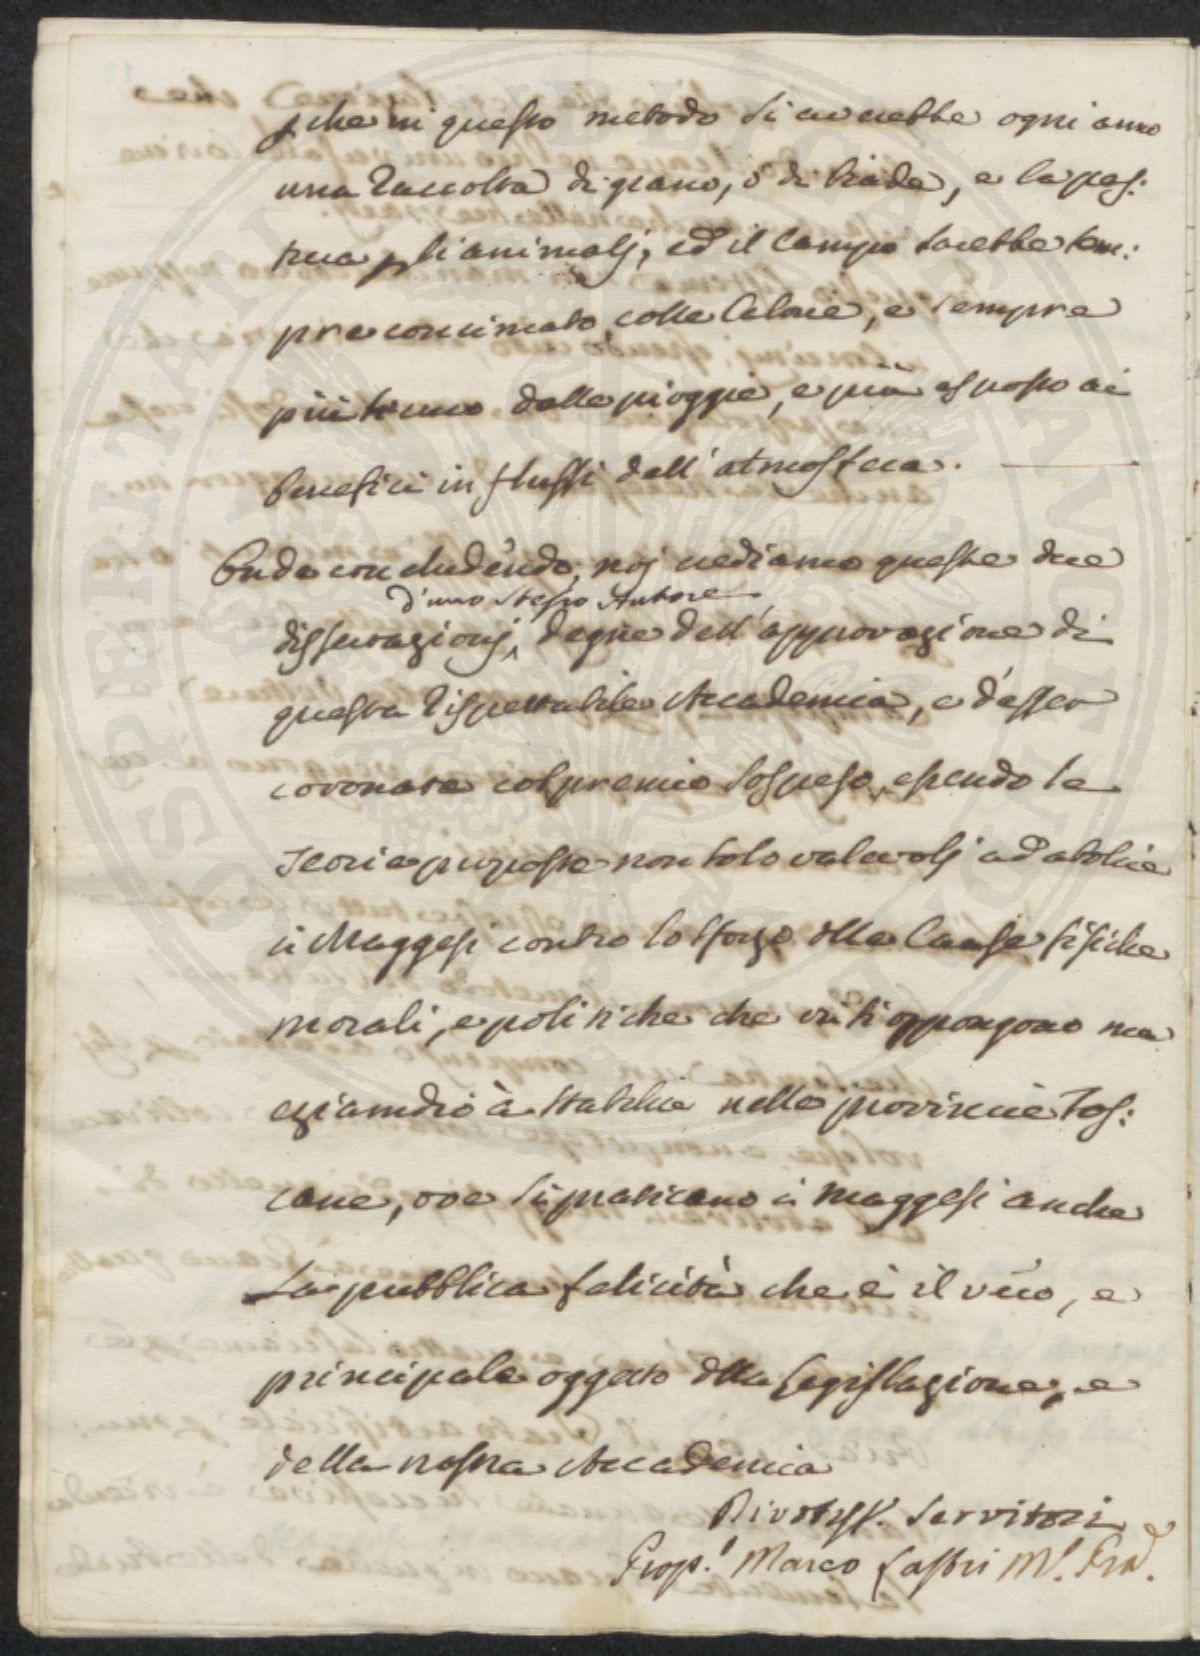 che in questo metodo si avrebbe ogni anno
una raccolta di grano, ò di biade, e la pas:
tura p gli animalj, ed il campo sarebbe sem:
pre concimato colle Calorie, e sempre
più dalle pioggie, e più esposto ai
benefici influssi dall' atmosfera.
Onde concludendo, noj vediamo queste due
d'uno stesso Autore
dissertazionj, degne dell' approvazione di
questa rispettabile Accademia, e d'esser
coronate col premio sospeso, essendo le
teorie proposte non solo valevolj ad abolire
i Maggesi contro lo sforzo dlle Cause fisiche
morali, e politiche che vi si oppongono ma
eziandio à stabilire nelle provincie Tos:
cane, ove si praticano i maggesi anche
La pubblica felicità che è il vero, e
principale oggetto dlla Legislazione, e
della nostra Accademia
Divotiss. Servitori
Prop. Marco Lastri
SOSPERITATI PUBLICAE AUGENDAE